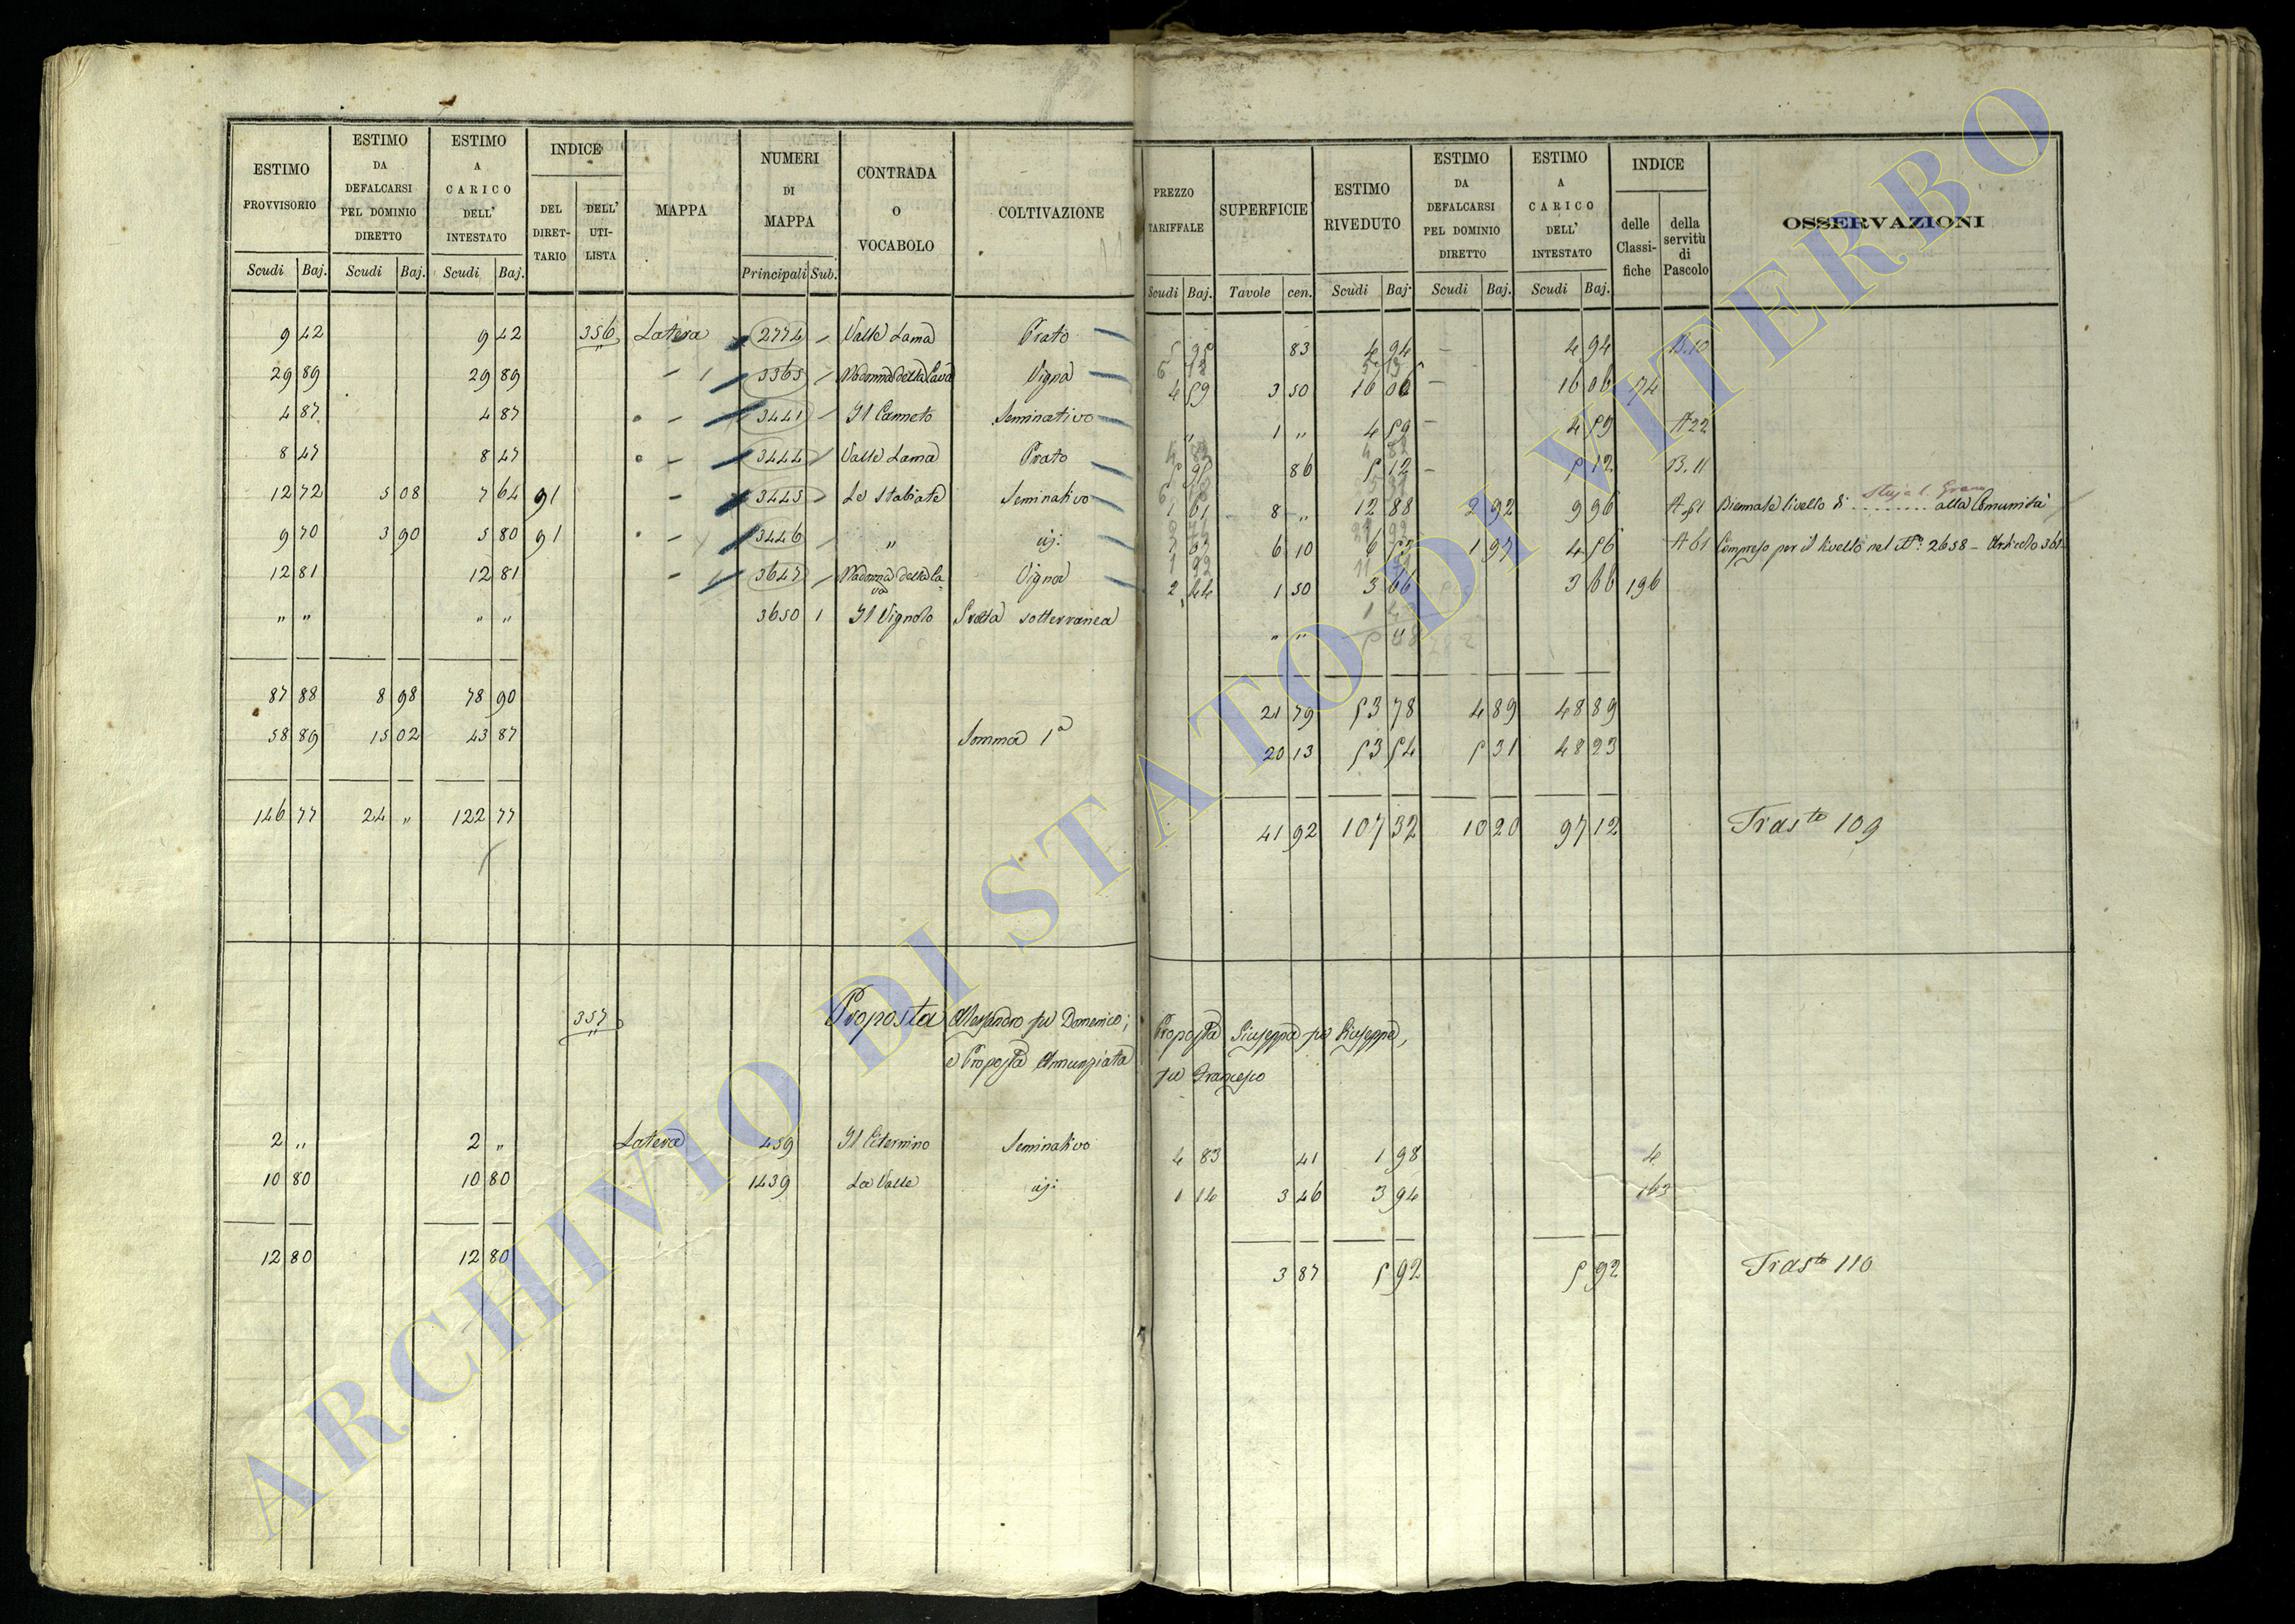 ESTIMO PROVVISORIO Scudi Baj.
ESTIMO DA DEFALCARSI PEL DOMINIO DIRETTO Scudi Baj.
ESTIMO A CARICO DELL' INTESTATO Scudi Baj.
INDICE DEL DIRETTARIO DELL' UTILISTA
MAPPA
NUMERI DI MAPPA Principali Sub.
CONTRADA O VOCABOLO
COLTIVAZIONE
PREZZO TARIFFALE Scudi Baj.
SUPERFICIE Tavole cen.
ESTIMO RIVEDUTO Scudi Baj.
ESTIMO DA DEFALCARSI PEL DOMINIO DIRETTO Scudi Baj.
ESTIMO A CARICO DELL' INTESTATO Scudi Baj.
INDICE delle Classifiche della servitù di Pascolo
OSSERVAZIONI
9 42 9 42 356 Latera 2774 Valle Lama Prato 5 95 83 4 94 4 94 B.10
29 89 29 89 3365 Madonna della Cava Vigna 4 59 3 50 16 06 16 06 74
4 87 4 87 3441 Il Canneto Seminativo " 1 " 4 59 4 59 A 22
8 47 8 47 3444 Valle Lama Prato 5 95 86 5 12 5 12 B. 11
12 72 5 08 7 64 91 3445 Le Stabiate Seminativo 1 61 8 " 12 88 2 92 9 96 A 51 Biennale livello di Staja 1. Grano alla Comunità
9 70 3 90 5 80 91 3446 " id: 6 10 1 97 4 56 A 61 Compreso per il livello nel N.º 2658 - Articolo 361
12 81 12 81 3647 Madonna della Cava Vigna 2 44 1 50 3 66 3 66 196
" " " " 3650 1 Il Vignolo Grotta sotterranea " "
87 88 8 98 78 90 21 79 53 78 4 89 48 89
58 89 15 02 43 87 Somma 1ª 20 13 53 54 5 31 48 23
146 77 24 " 122 77 41 92 107 32 10 20 97 12 Tras.to 109
357 Proposta Alessandro fu Domenico; Proposta Giuseppa fu Giuseppe,
e Proposta Annunziata fu Francesco
2 " 2 " Latera 459 Il Citernino Seminativo 4 83 41 1 98 4
10 80 10 80 1439 La Valle id: 1 14 3 46 3 94 163
12 80 12 80 3 87 5 92 5 92 Tras.to 110
ARCHIVIO DI STATO DI VITERBO